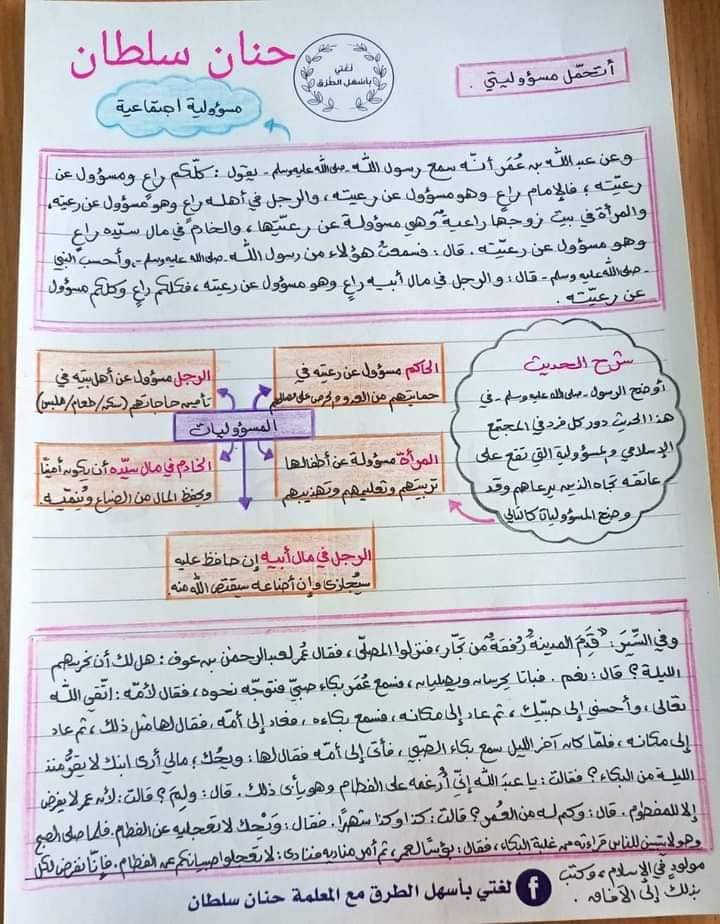 حنان سلطان
لغتي
بأسهل الطرق
أتحمّل مسؤوليتي .
مسؤولية اجتماعية
وعن عبدالله بن عُمَر أنّه سمع رسول الله -صلى الله عليه وسلم- يقول : كلّكم راعٍ ومسؤول عن
رعيّته ؛ فالإمام راعٍ وهو مسؤول عن رعيته ، والرجل في أهله راعٍ وهو مسؤول عن رعيته،
والمرأة في بيت زوجها راعية وهي مسؤولة عن رعيّتها ، والخادم في مال سيّده راعٍ
وهو مسؤول عن رعيّته . قال : فسمعتُ هؤلاء من رسول الله -صلى الله عليه وسلم- ، وأحسبُ النبي
-صلى الله عليه وسلم- قال : والرجل في مال أبيه راعٍ وهو مسؤول عن رعيته ، فكلكم راعٍ وكلكم مسؤول
عن رعيّته .
شرح الحديث
أوضح الرسول -صلى الله عليه وسلم- في
هذا الحديث دور كل فرد في المجتمع
الإسلامي والمسؤولية التي تقع على
عاتقه تجاه الذين يرعاهم وقد
وضح المسؤوليات كالتالي
المسؤوليات
الحاكم مسؤول عن رعيته في
حمايتهم من العدو والحرص على مصالحهم
الرجل مسؤول عن أهل بيته في
تأمين حاجاتهم (سكن/طعام/ملبس)
المرأة مسؤولة عن أطفالها
تربيتهم وتعليمهم وتهذيبهم
الخادم في مال سيّده أن يكون أمينًا
ويحفظ المال من الضياع ويُنمّيه
الرجل في مال أبيه إن حافظ عليه
سيُجازى وإن أضاعه سيقتص الله منه
وفي السِّيَر : "قَدِمَ المدينة رُفقة من تجّار، فنزلوا المصلّى ، فقال عُمر لعبدالرحمن بن عوف : هل لك أن نحرسهم
الليلة ؟ قال : نعم . فباتا يحرسان ويصليان ، فسمع عُمَر بكاء صبيّ فتوجّه نحوه ، فقال لأمّه : اتّقي الله
تعالى ، وأحسني إلى صبيّك ، ثم عاد إلى مكانه ، فسمع بكاءه ، فعاد إلى أمّه فقال لها مثل ذلك ، ثم عاد
إلى مكانه ، فلمّا كان آخر الليل سمع بكاء الصّبي ، فأتى إلى أمّه فقال لها : ويحُك ؛ مالي أرى ابنك لا يقرُّ منذ
الليلة من البكاء ؟ فقالت : يا عبدَ الله إنّي أُرغمه على الفطام وهو يأبى ذلك . قال : ولِمَ ؟ قالت : لأن عمر لا يفرض
إلا للمفطوم . قال : وكم له من العُمر ؟ قالت : كذا وكذا شهرًا . فقال : ويْحَك لا تعجليه عن الفطام. فلما صلى الصبح
وهو لا يتبين للناس قراءته من غلبة البكاء ، فقال : بؤسًا لعمر، ثم أمر مناديه فنادى : لا تعجلوا صبيانكم عن الفطام . فإنّا نفرض لكل
مولود في الإسلام ، وكتب
بذلك إلى الآفاق .
لغتي بأسهل الطرق مع المعلمة حنان سلطان